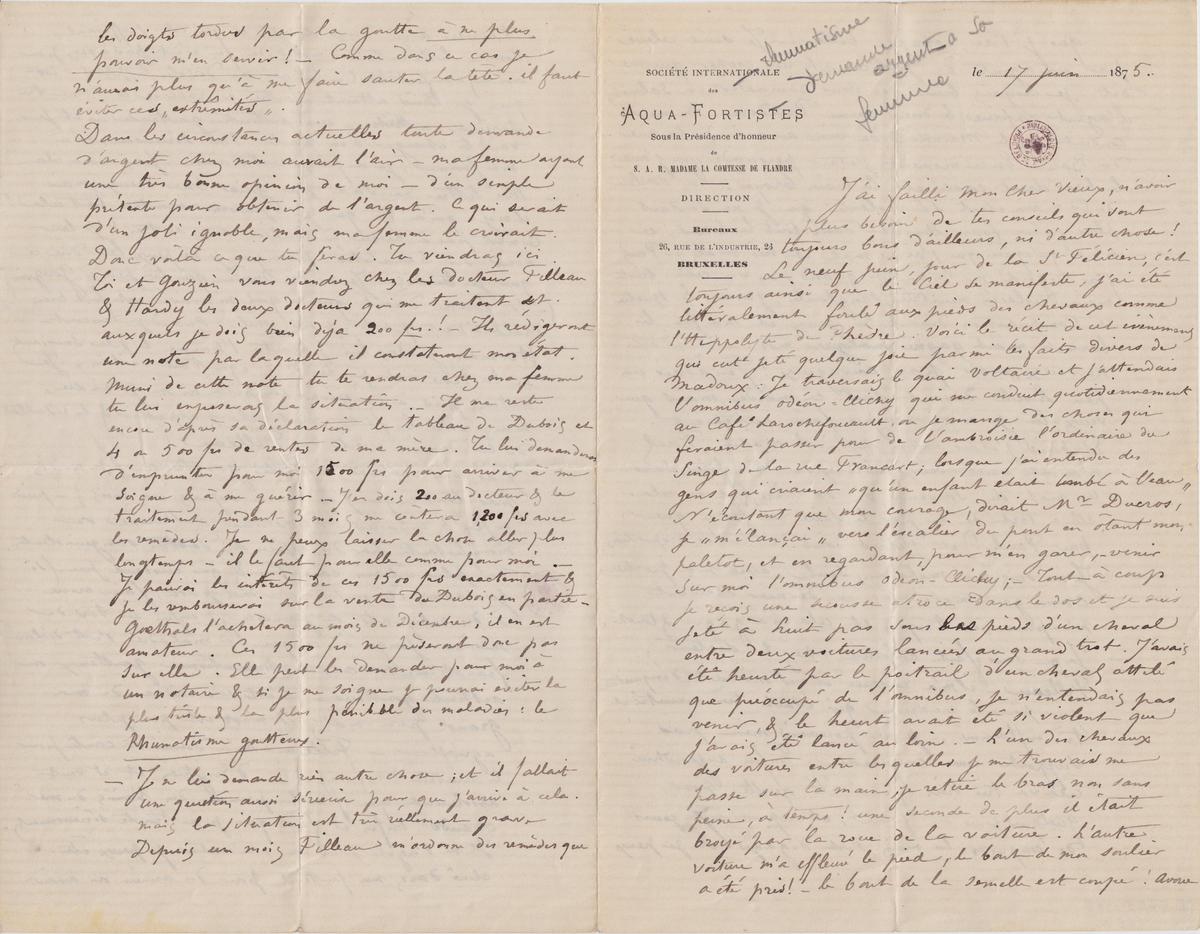 les doigts tordus par la goutte à ne plus
pouvoir m'en servir ! — Comme dans ce cas je
n'aurais plus qu'à me faire sauter la tête. il faut
éviter ces „extrêmités".
Dans les circonstances actuelles toute demande
d'argent chez moi aurait l'air — ma femme ayant
une très bonne opinion de moi — d'un simple
prétexte pour obtenir de l'argent. Ce qui serait
d'un joli ignoble, mais ma femme le croirait.
Donc voilà ce que tu feras. Tu viendras ici
Toi et Gouzien vous viendrez chez les docteur Filleau
& Hardy les deux docteurs qui me traitent et
auxquels je dois bien déja 200 frs. ! — Ils rédigeront
une note par laquelle il constateront mon état.
Muni de cette note tu te rendras chez ma femme
tu lui exposeras la situation. — Il me reste
encore d'après sa déclaration le tableau de Dubois et
4 ou 500 frs de rentes de ma mère. Tu lui demanderas
d'emprunter pour moi 1500 frs pour arriver à me
soigner & à me guérir — J'en dois 200 au docteur & le
traitement pendant 3 mois me coûtera 1,200 frs avec
les remèdes. Je ne peux laisser la chose aller plus
longtemps — il le faut pour elle comme pour moi —
Je paierai les intérêts de ces 1500 frs exactement &
je les rembourserai sur la vente du Dubois en partie —
Goethals l'achètera au mois de Décembre, il en est
amateur. Ces 1500 frs ne pèseront donc pas
sur elle. Elle peut les demander pour moi à
un notaire & si je me soigne je pourrai éviter la
plus triste & la plus pénible des maladies : le
Rhumatisme goutteux.
— Je ne lui demande rien autre chose ; et il fallait
une question aussi sérieuse pour que j'arrive à cela.
mais la situation est très réellement grave
Depuis un mois Filleau m'ordonne des remèdes que
rhumatisme
demande
argent à sa
femme
SOCIÉTÉ INTERNATIONALE
des
AQUA-FORTISTES
Sous la Présidence d'honneur
de
S. A. R. MADAME LA COMTESSE DE FLANDRE
DIRECTION
Bureaux
26, RUE DE L'INDUSTRIE, 26
BRUXELLES
le 17 juin 1875.
J'ai failli mon Cher Vieux, n'avoir
plus besoin de tes conseils qui sont
toujours bons d'ailleurs, ni d'autre chose !
Le neuf juin, jour de la St Félicien, c'est
toujours ainsi que le Ciel se manifeste, j'ai été
littéralement foulé aux pieds des chevaux comme
l'Hippolyte de Phèdre. Voici le récit de cet évènement
qui eut jeté quelque joie parmi les faits divers de
Madoux : Je traversais le quai Voltaire et j'attendais
l'omnibus odéon-Clichy qui me conduit quotidiennement
au Café Larochefoucault, où je mange des choses qui
feraient passer pour de l'ambroisie l'ordinaire du
Singe de la rue Francart ; lorsque j'ai entendu des
gens qui criaient „qu'un enfant était tombé à l'eau"
N'écoutant que mon courage, dirait Mr Ducros,
je „m'élançai" vers l'escalier du pont en otant mon
paletot, et en regardant, pour m'en garer, — venir
sur moi l'omnibus odéon-Clichy ; — Tout à coup
je reçois une secousse atroce dans le dos et je suis
jeté à huit pas sous les pieds d'un cheval
entre deux voitures lancées au grand trot. J'avais
été heurté par le poitrail d'un cheval attelé
que préoccupé de l'omnibus, je n'entendais pas
venir, & le heurt avait été si violent que
j'avais été lancé au loin. — L'un des chevaux
des voitures entre lesquelles je me trouvais me
passe sur la main, je retire le bras non sans
peine, à temps ! une seconde de plus il était
broyé par la roue de la voiture. L'autre
voiture m'a effleuré le pied, le bout de mon soulier
a été pris ! — le bout de la semelle est coupé ! Avoue